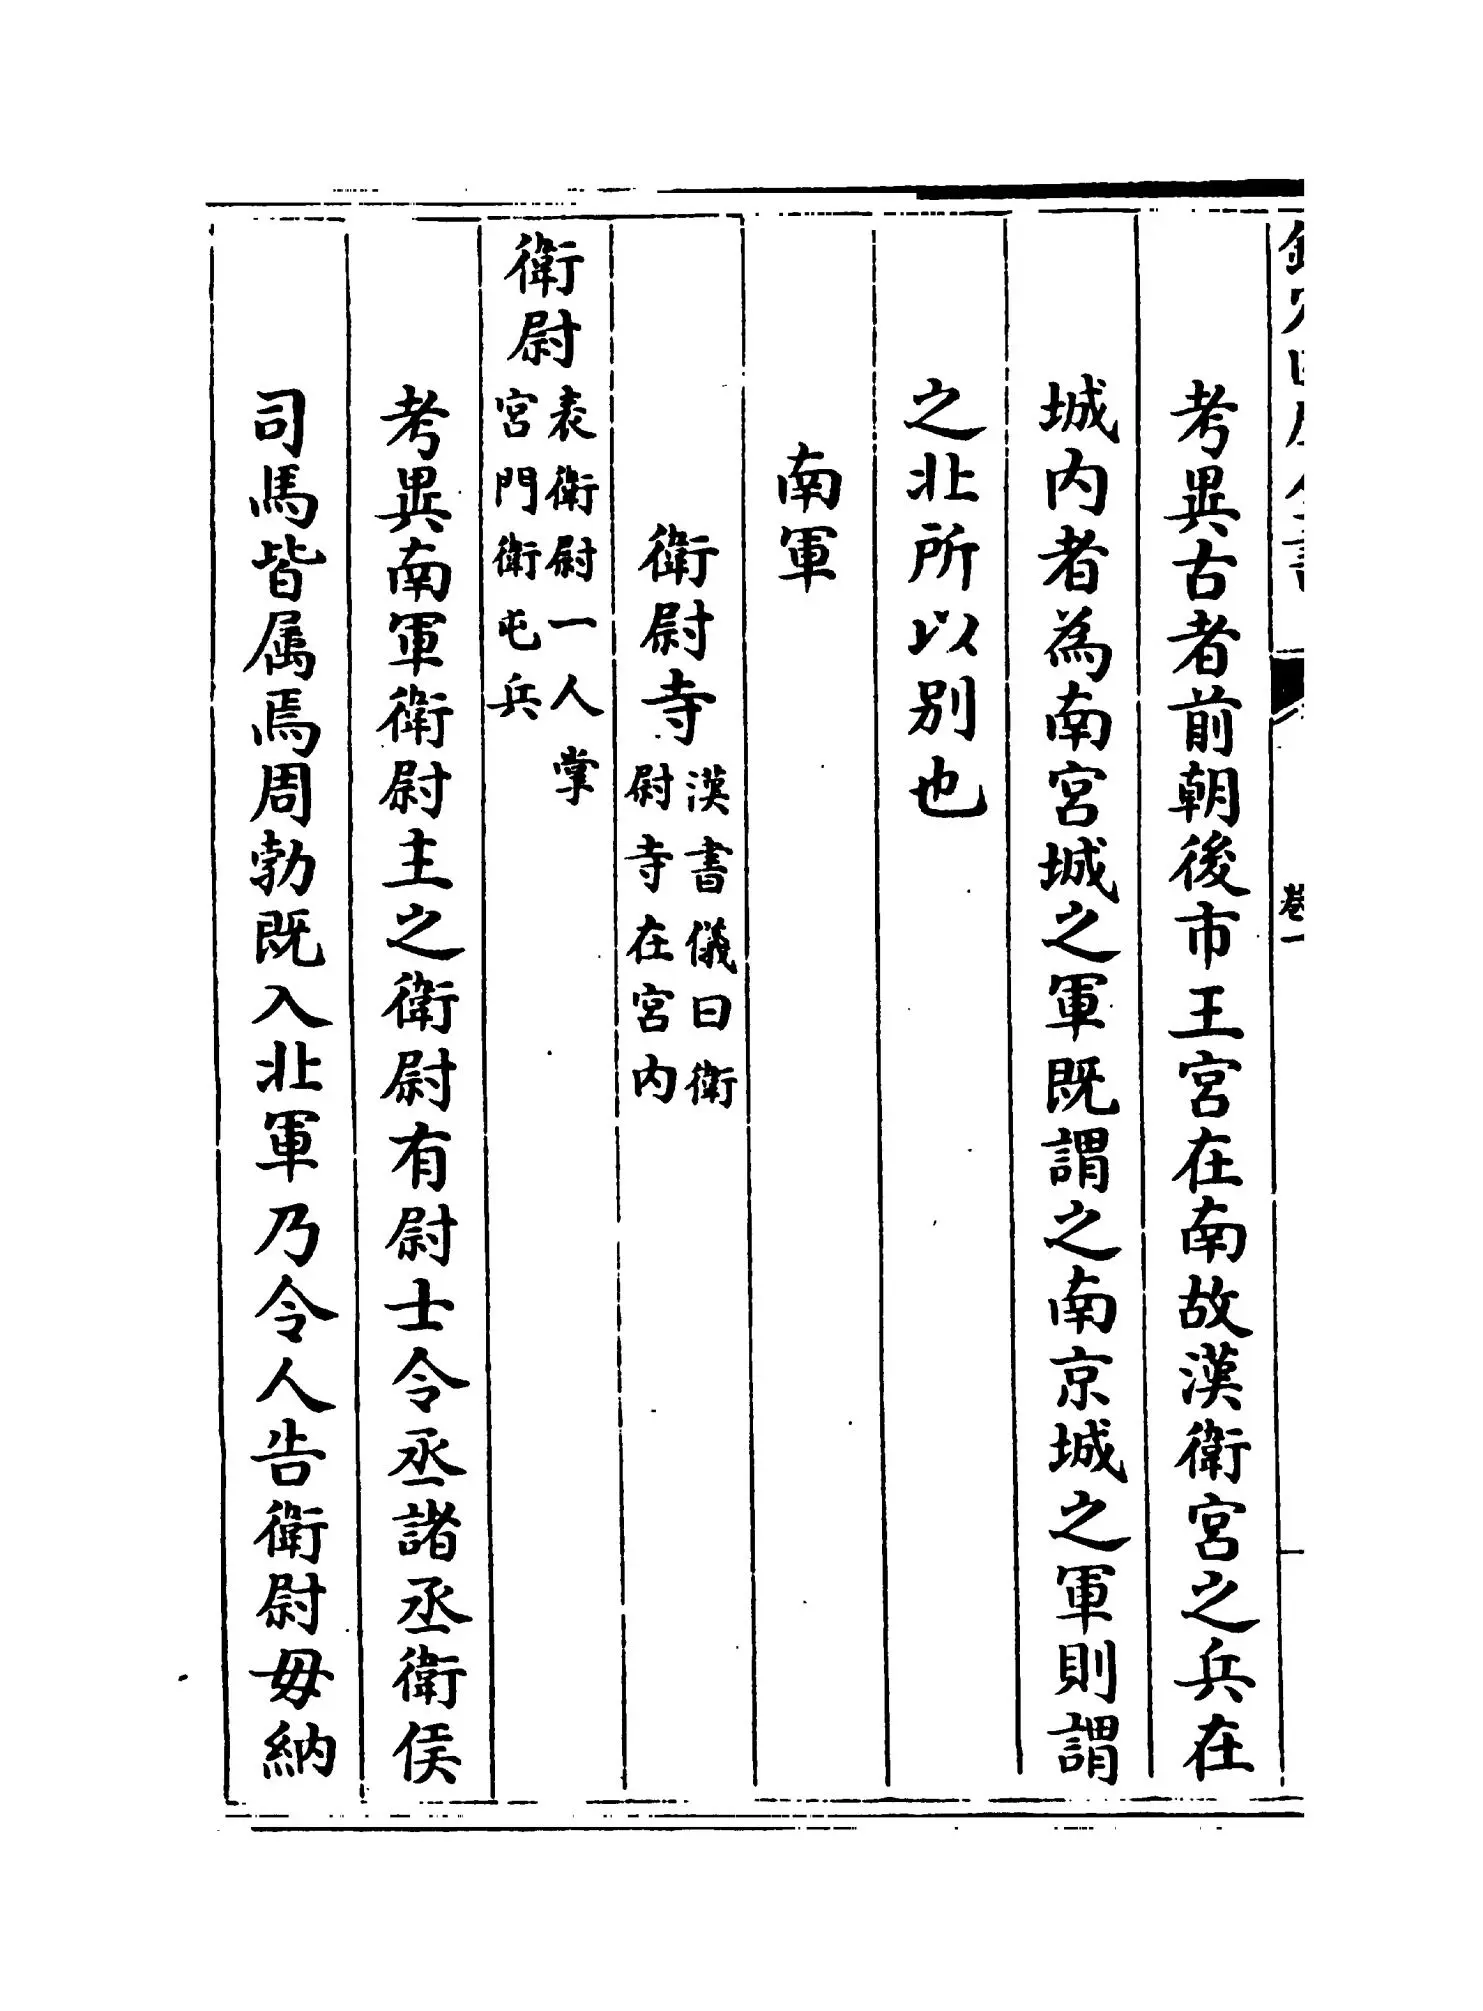 考異古者前朝後市王宮在南故漢衛宮之兵在
城内者為南宮城之軍既謂之南京城之軍則謂
之北所以别也
南軍
衛尉寺漢書儀曰衛
尉寺在宮内
衛尉表衛尉一人掌
宮門衛屯兵
考異南軍衛尉主之衛尉有尉士令丞諸丞衛侯
司馬皆属焉周勃既入北軍乃令人告衛尉毋納
卷一